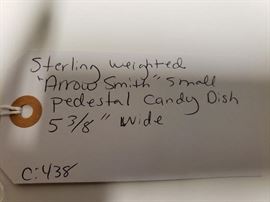 Sterling weighted
"Arrow Smith" small
pedestal Candy Dish
5 3/8" wide
C:438